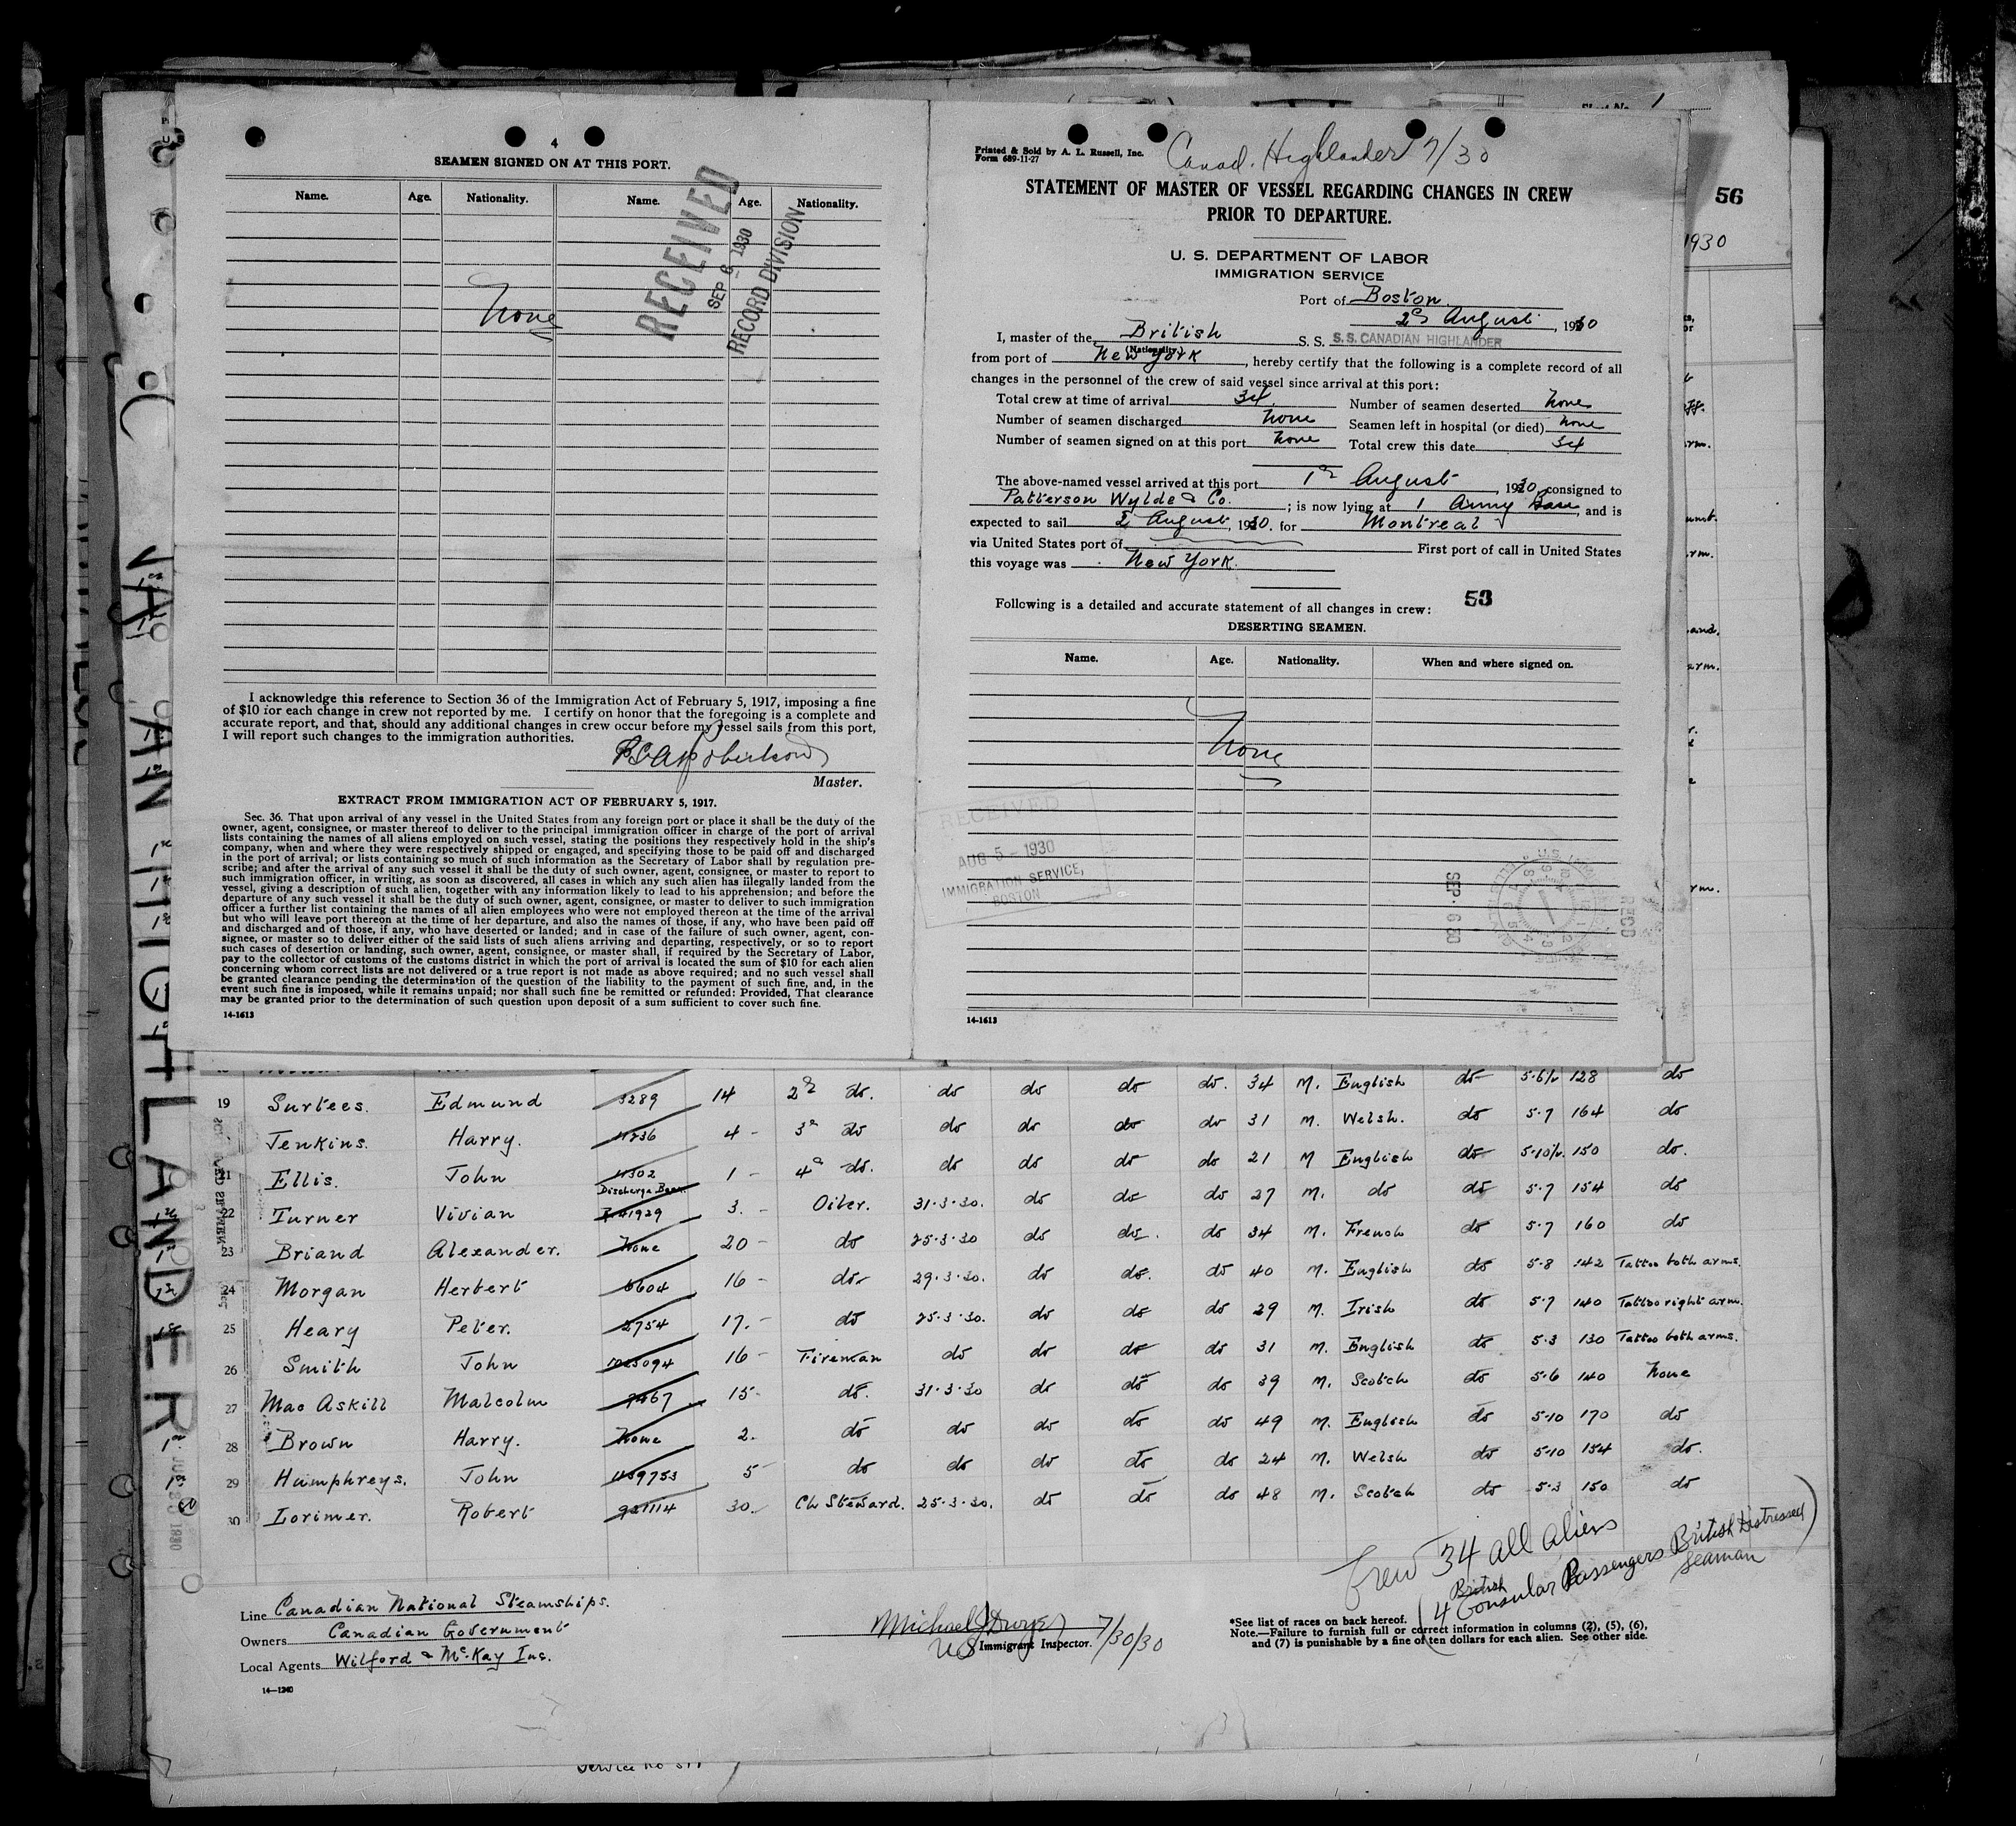 4
SEAMEN SIGNED ON AT THIS PORT.
Name. Age. Nationality. Name. Age. Nationality.
None
RECEIVED
SEP 6 1930
RECORD DIVISION
I acknowledge this reference to Section 36 of the Immigration Act of February 5, 1917, imposing a fine
of $10 for each change in crew not reported by me. I certify on honor that the foregoing is a complete and
accurate report, and that, should any additional changes in crew occur before my vessel sails from this port,
I will report such changes to the immigration authorities.
Robertson
Master.
EXTRACT FROM IMMIGRATION ACT OF FEBRUARY 5, 1917.
Sec. 36. That upon arrival of any vessel in the United States from any foreign port or place it shall be the duty of the
owner, agent, consignee, or master thereof to deliver to the principal immigration officer in charge of the port of arrival
lists containing the names of all aliens employed on such vessel, stating the positions they respectively hold in the ship's
company, when and where they were respectively shipped or engaged, and specifying those to be paid off and discharged
in the port of arrival; or lists containing so much of such information as the Secretary of Labor shall by regulation pre-
scribe; and after the arrival of any such vessel it shall be the duty of such owner, agent, consignee, or master to report to
such immigration officer, in writing, as soon as discovered, all cases in which any such alien has illegally landed from the
vessel, giving a description of such alien, together with any information likely to lead to his apprehension; and before the
departure of any such vessel it shall be the duty of such owner, agent, consignee, or master to deliver to such immigration
officer a further list containing the names of all alien employees who were not employed thereon at the time of the arrival
but who will leave port thereon at the time of her departure, and also the names of those, if any, who have been paid off
and discharged and of those, if any, who have deserted or landed; and in case of the failure of such owner, agent, con-
signee, or master so to deliver either of the said lists of such aliens arriving and departing, respectively, or so to report
such cases of desertion or landing, such owner, agent, consignee, or master shall, if required by the Secretary of Labor,
pay to the collector of customs of the customs district in which the port of arrival is located the sum of $10 for each alien
concerning whom correct lists are not delivered or a true report is not made as above required; and no such vessel shall
be granted clearance pending the determination of the question of the liability to the payment of such fine, and, in the
event such fine is imposed, while it remains unpaid; nor shall such fine be remitted or refunded: Provided, That clearance
may be granted prior to the determination of such question upon deposit of a sum sufficient to cover such fine.
14-1613
Printed & Sold by A. L. Russell, Inc.
Form 689-11-27
Canad. Highlander 7/30
STATEMENT OF MASTER OF VESSEL REGARDING CHANGES IN CREW
PRIOR TO DEPARTURE.
U. S. DEPARTMENT OF LABOR
IMMIGRATION SERVICE
Port of Boston
2nd August, 1930
I, master of the British S. S. S.S. CANADIAN HIGHLANDER
(Nationality.)
from port of New York, hereby certify that the following is a complete record of all
changes in the personnel of the crew of said vessel since arrival at this port:
Total crew at time of arrival 34 Number of seamen deserted None
Number of seamen discharged None Seamen left in hospital (or died) None
Number of seamen signed on at this port None Total crew this date 34
The above-named vessel arrived at this port 1st August, 1930, consigned to
Patterson Wylde & Co.; is now lying at 1 Army Base, and is
expected to sail 2 August, 1930, for Montreal
via United States port of First port of call in United States
this voyage was New York.
53
Following is a detailed and accurate statement of all changes in crew:
DESERTING SEAMEN.
Name. Age. Nationality. When and where signed on.
None
RECEIVED
AUG 5 - 1930
IMMIGRATION SERVICE,
BOSTON
SEP 6 30
14-1613
56
1930
HIGHLANDER
19 Surtees. Edmund 3289 14 2nd do. do do do do. 34 M. English do 5-6½ 128 do
Jenkins. Harry. 4 - 3rd do do do do do 31 M. Welsh. do 5-7 164 do
21 Ellis. John 1 - 4th do. do do do do 21 M English do 5-10½ 150 do.
Discharge Book
22 Turner Vivian R41929 3. - Oiler. 31-3-30. do do do 27 M. do do 5-7 154 do
23 Briand Alexander. None 20 - do 25-3-30 do do. do 34 M. French do 5-7 160 do
24 Morgan Herbert 6604 16 - do 29-3-30. do do. do 40 M. English do 5-8 142 Tattoo both arms.
25 Heary Peter. 2754 17. - do 25-3-30. do do do 29 M. Irish do 5-7 140 Tattoo right arm.
26 Smith John 16 - Fireman do do do do 31 M. English do 5-3 130 Tattoo both arms.
27 Mac Askill Malcolm 7467 15- do. 31-3-30 do do do 39 M. Scotch do 5-6 140 None
28 Brown Harry. None 2. do do do do do 49 M. English do 5-10 170 do
29 Humphreys. John 5 - do do do do do 24 M. Welsh do 5-10 154 do.
30 Lorimer. Robert 921114 30. Ch Steward. 25-3-30. do do do 48 M. Scotch do 5-3 150 do
Crew 34 all aliens
(4 British Consular Passengers British Distressed Seaman)
Line Canadian National Steamships.
Owners Canadian Government
Local Agents Wilford & McKay Inc.
14-1240
Michael J Dwyer
US Immigrant Inspector. 7/30/30
*See list of races on back hereof.
Note.—Failure to furnish full or correct information in columns (2), (5), (6),
and (7) is punishable by a fine of ten dollars for each alien. See other side.